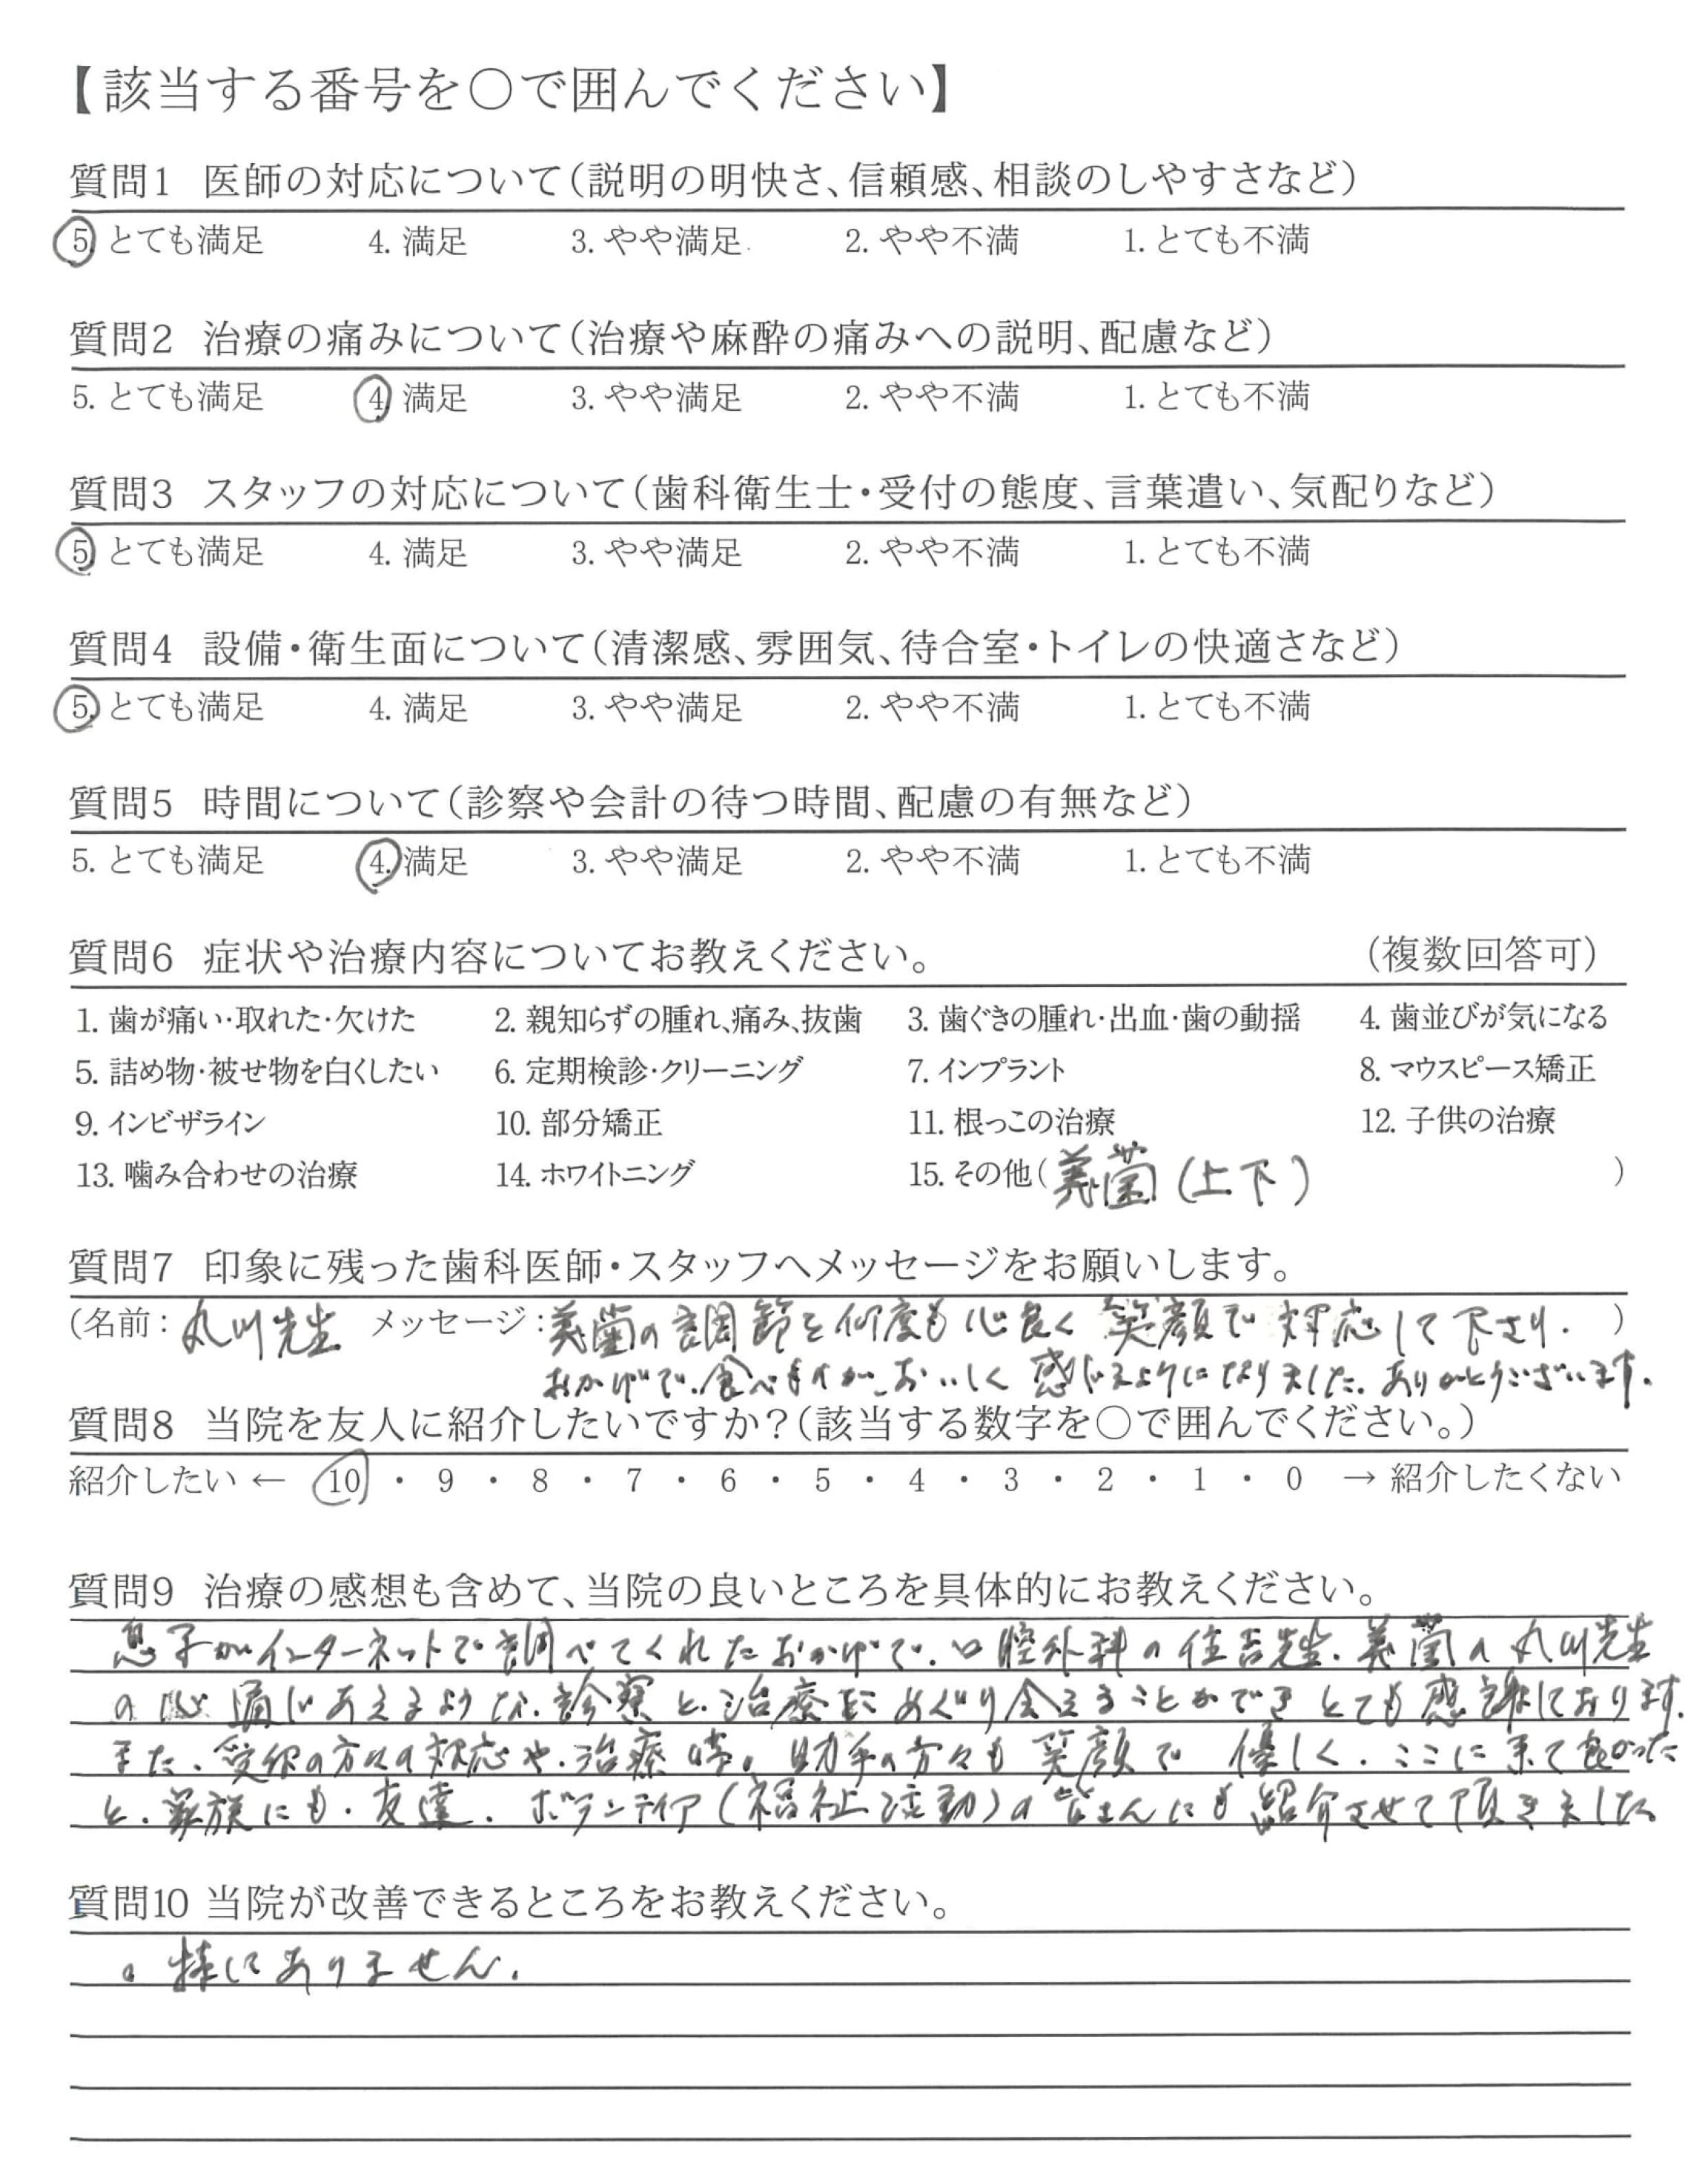 【該当する番号を○で囲んでください】
質問1 医師の対応について（説明の明快さ、信頼感、相談のしやすさなど）
5. とても満足 4. 満足 3. やや満足 2. やや不満 1. とても不満
質問2 治療の痛みについて（治療や麻酔の痛みへの説明、配慮など）
5. とても満足 4. 満足 3. やや満足 2. やや不満 1. とても不満
質問3 スタッフの対応について（歯科衛生士・受付の態度、言葉遣い、気配りなど）
5. とても満足 4. 満足 3. やや満足 2. やや不満 1. とても不満
質問4 設備・衛生面について（清潔感、雰囲気、待合室・トイレの快適さなど）
5. とても満足 4. 満足 3. やや満足 2. やや不満 1. とても不満
質問5 時間について（診察や会計の待つ時間、配慮の有無など）
5. とても満足 4. 満足 3. やや満足 2. やや不満 1. とても不満
質問6 症状や治療内容についてお教えください。 （複数回答可）
1. 歯が痛い・取れた・欠けた 2. 親知らずの腫れ、痛み、抜歯 3. 歯ぐきの腫れ・出血・歯の動揺 4. 歯並びが気になる
5. 詰め物・被せ物を白くしたい 6. 定期検診・クリーニング 7. インプラント 8. マウスピース矯正
9. インビザライン 10. 部分矯正 11. 根っこの治療 12. 子供の治療
13. 噛み合わせの治療 14. ホワイトニング 15. その他（義歯（上下） ）
質問7 印象に残った歯科医師・スタッフへメッセージをお願いします。
（名前：丸川先生 メッセージ：義歯の調節を何度も心良く笑顔で対応して下さり. ）
おかげで、食べものが、おいしく感じるようになりました。ありがとうございます.
質問8 当院を友人に紹介したいですか？（該当する数字を○で囲んでください。）
紹介したい ← 10 ・ 9 ・ 8 ・ 7 ・ 6 ・ 5 ・ 4 ・ 3 ・ 2 ・ 1 ・ 0 → 紹介したくない
質問9 治療の感想も含めて、当院の良いところを具体的にお教えください。
息子がインターネットで調べてくれたおかげで、口腔外科の住吉先生、義歯の丸川先生
の心通じあえるような、診察と、治療にめぐり会えることができとても感謝しております.
また、受付の方々の対応や、治療時。助手の方々も笑顔で優しく、ここに来て良かった
と、家族にも、友達、ボランティア（福祉活動）の皆さんにも紹介させて頂きました。
質問10 当院が改善できるところをお教えください。
。特にありません.